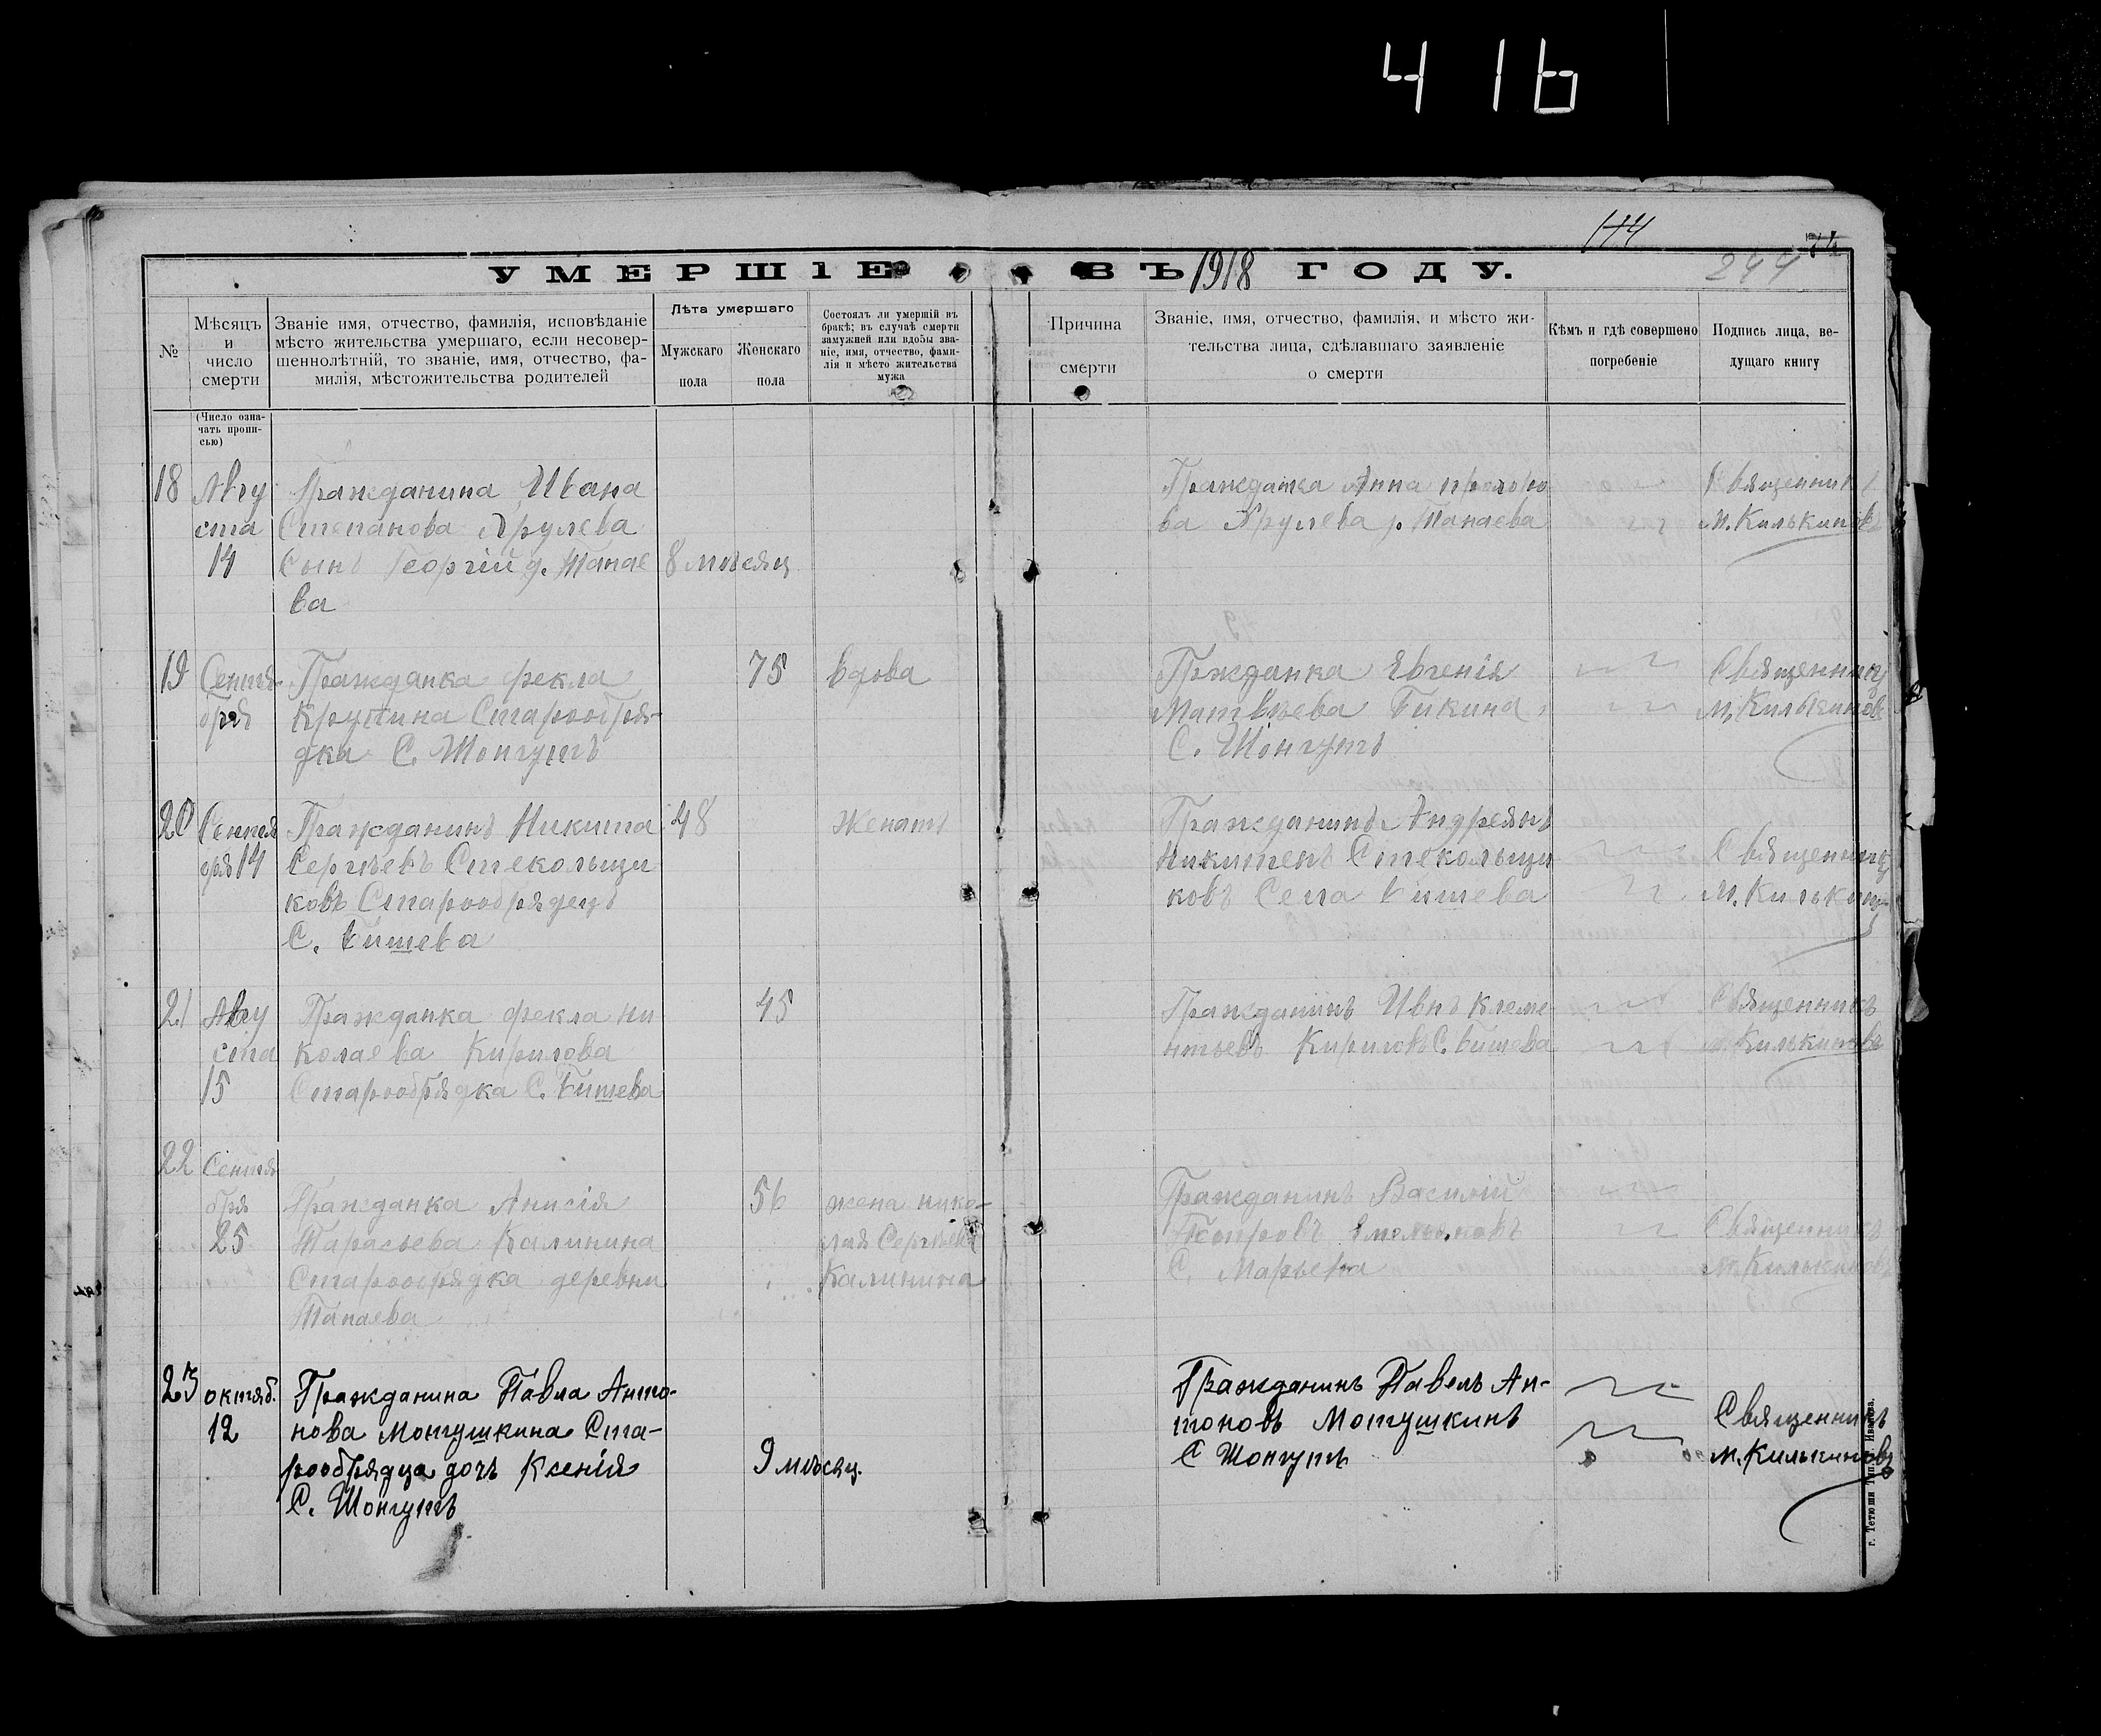 416
144
244
УМЕРШІЕ ВЪ 1918 ГОДУ.
№
Мѣсяцъ
и
число
смерти
Званіе имя, отчество, фамилія, исповѣданіе
мѣсто жительства умершаго, если несовер-
шеннолѣтній, то званіе, имя, отчество, фа-
милія, мѣстожительства родителей
Лѣта умершаго
Мужскаго
пола
Женскаго
пола
Состоялъ ли умершій въ
бракѣ; въ случаѣ смерти
замужней или вдовы зва-
ніе, имя, отчество, фами-
лія и мѣсто жительства
мужа
Причина
смерти
Званіе, имя, отчество, фамилія, и мѣсто жи-
тельства лица, сдѣлавшаго заявленіе
о смерти
Кѣмъ и гдѣ совершено
погребеніе
Подпись лица, ве-
дущаго книгу
(Число озна-
чать пропи-
сью)
18
Авгу
ста
14
Гражданина Ивана
Степанова Хрулева
Сынъ Георгій д. Танае
ва
8 мѣсяц
Гражданка Анна прохоро
ва Хрулева д. Танаева
Священник
М. Килькиновъ
19
Сентя-
бря
Гражданка фекла
Старообря-
дка С. Шонгутъ
75
вдова
Гржданка Евгенія
Матвѣева Бикина
С. Шонгутъ
Священникъ
М. Килькиновъ
20
Сентя
бря 14
Гражданинъ Никита
Сергѣевъ Стекольщи
ковъ Старообрядецъ
С. Бишева
48
Женатъ
Гражданинъ Андреянъ
Никитенъ Стекольщи
ковъ Села Бишева
Священникъ
М. Килькинъ
21
Авгу
ста
15
Гражданка фекла ни
колаева Кирилова
Старообрядка С. Бишева
45
Гражданинъ Ивнъ клеме
нтьевъ Кириловъ С. Бишева
Священникъ
М. Килькиновъ
22
Сентя
бря
25
Гражданка Анисія
Тарасьева Калинина
Старообрядка деревни
Танаева
56
жена нико-
лая Сергѣева
Калинина
Гражданинъ Василій
Петровъ Емельяновъ
С. Марьева
Священникъ
М. Килькиновъ
23
октяб.
12
Гражданина Павла Анто-
нова Монгушкина Ста-
рообрядца дочь Ксенія
С. Шонгутъ
9 мѣсяц.
Гражданинъ Павелъ Ан-
тоновъ Монгушкинъ
С Шонгутъ
Священникъ
М. Килькиновъ